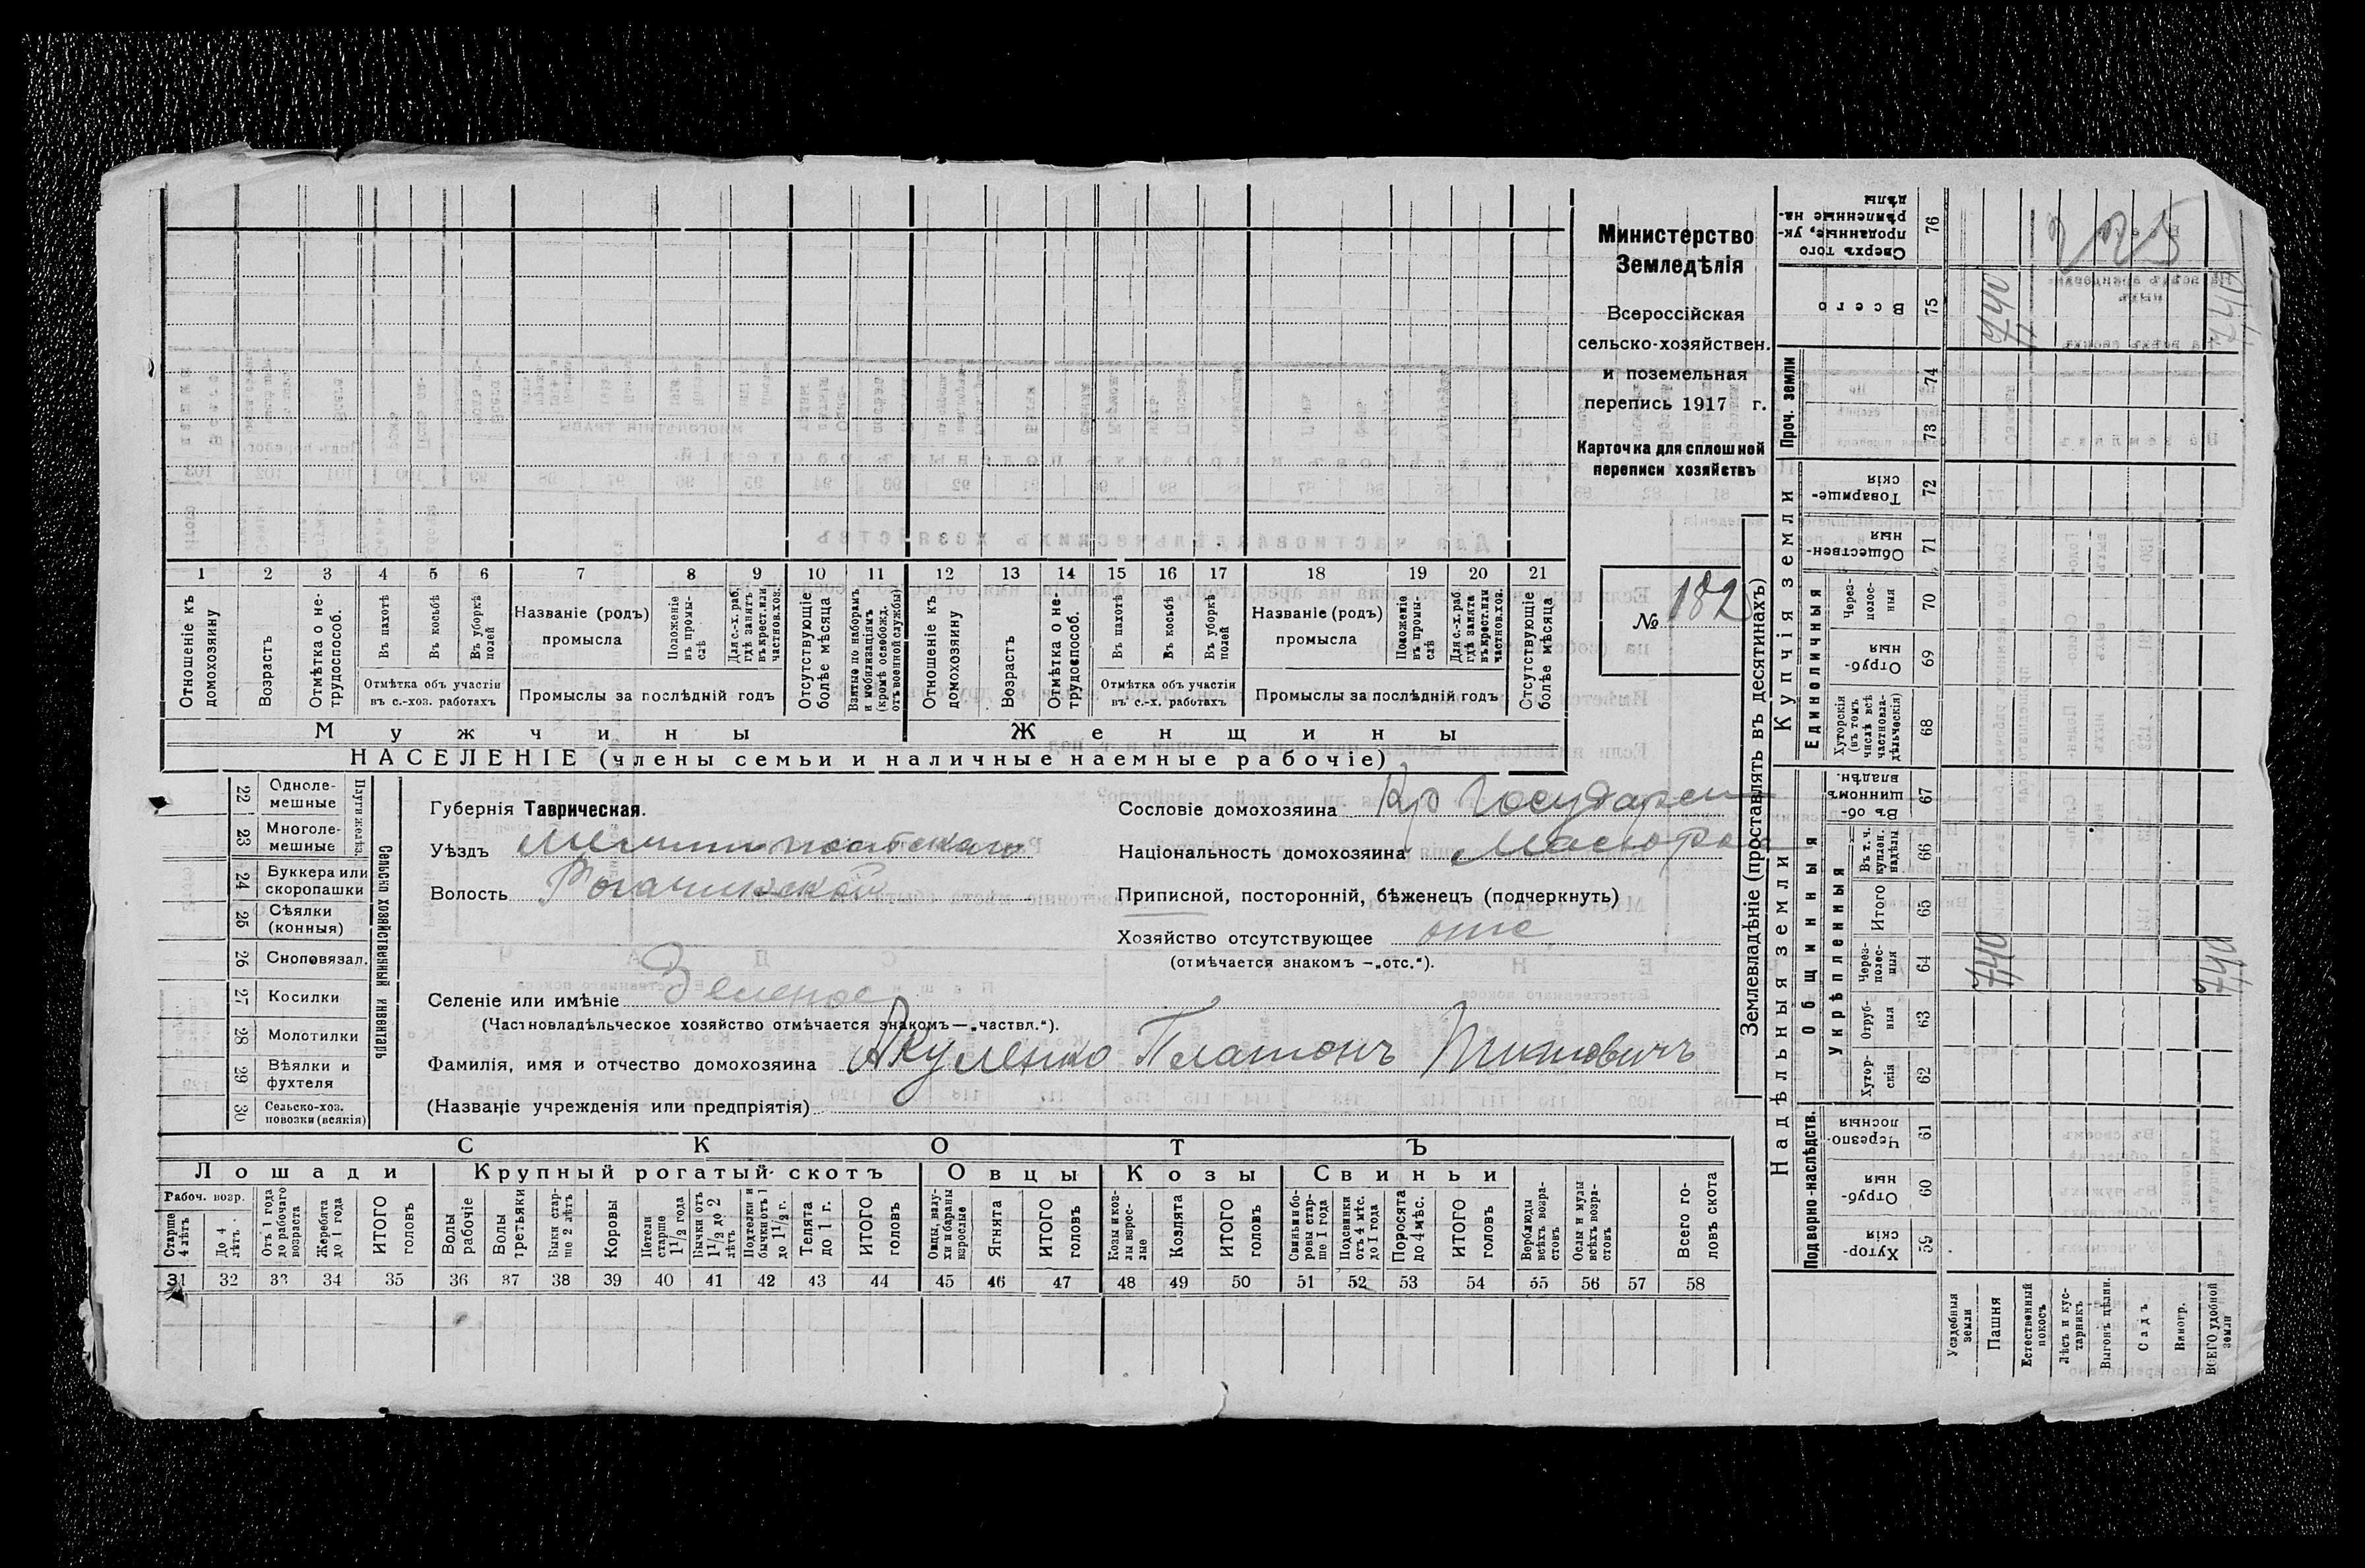 Министерство
Земледѣлія
Всероссійская
сельско-хозяйствен.
и поземельная
перепись 1917 г.
Карточка для сплошной
переписи хозяйствъ
№ 182
1 2 3 4 5 6 7 8 9 10 11 12 13 14 15 16 17 18 19 20 21
Отношеніе къ домохозяину
Возрастъ
Отмѣтка о нетрудоспособ.
Въ пахотѣ
Въ косьбѣ
Въ уборкѣ полей
Отмѣтка объ участіи
въ с.-хоз. работахъ
Названіе (родъ)
промысла
Положеніе въ промыслѣ
Для с.-х. раб. гдѣ занятъ въ крест. или частнов. хоз.
Промыслы за послѣдній годъ
Отсутствующіе болѣе мѣсяца
Взятые по наборамъ и мобилизаціямъ (кромѣ освобожд. отъ военной службы)
Отношеніе къ домохозяину
Возрастъ
Отмѣтка о нетрудоспособ.
Въ пахотѣ
Въ косьбѣ
Въ уборкѣ полей
Отмѣтка объ участіи
въ с.-х. работахъ
Названіе (родъ)
промысла
Положеніе въ промыслѣ
Для с.-х. раб. гдѣ занята въ крест. или частнов. хоз.
Промыслы за послѣдній годъ
Отсутствующіе болѣе мѣсяца
Мужчины Женщины
НАСЕЛЕНІЕ (члены семьи и наличные наемные рабочіе)
Сельско хозяйственный инвентарь
Плуги желѣз.
22 Одноле-
мешные
23 Многоле-
мешные
24 Буккера или
скоропашки
25 Сѣялки
(конныя)
26 Сноповязал.
27 Косилки
28 Молотилки
29 Вѣялки и
фухтеля
30 Сельско-хоз.
повозки (всякія)
Губернія Таврическая.
Уѣздъ Мелитопольскаго
Волость Рогачинской
Селеніе или имѣніе Зеленое
(Частновладѣльческое хозяйство отмѣчается знакомъ—„частвл.“).
Фамилія, имя и отчество домохозяина Акуленко Платонъ Титовичъ
(Названіе учрежденія или предпріятія)
Сословіе домохозяина Кр Государст
Національность домохозяина Малорос
Приписной, посторонній, бѣженецъ (подчеркнуть)
Хозяйство отсутствующее отс
(отмѣчается знакомъ —„отс.“).
СКОТЪ
Лошади Крупный рогатый скотъ Овцы Козы Свиньи
Рабоч. возр.
Старше 4 лѣтъ
До 4 лѣтъ
Отъ 1 года до рабочаго возраста
Жеребята до 1 года
ИТОГО головъ
Волы рабочіе
Волы третьяки
Быки старше 2 лѣтъ
Коровы
Нетели старше 1 1/2 года
Бычки отъ 1 1/2 до 2 лѣтъ
Подтелки и бычки отъ 1 до 1 1/2 г.
Телята до 1 г.
ИТОГО головъ
Овцы, валухи и бараны взрослые
Ягнята
ИТОГО головъ
Козы и козлы взрослые
Козлята
ИТОГО головъ
Свиньи и боровы старше 1 года
Подсвинки отъ 4 мѣс. до 1 года
Поросята до 4 мѣс.
ИТОГО головъ
Верблюды всѣхъ возрастовъ
Ослы и мулы всѣхъ возрастовъ
Всего головъ скота
31 32 33 34 35 36 37 38 39 40 41 42 43 44 45 46 47 48 49 50 51 52 53 54 55 56 57 58
Землевладѣніе (проставлять въ десятинахъ)
Надѣльныя земли
Купчія земли
Проч. земли
Подворно-наслѣдств.
Общинныя
Укрѣпленныя
Единоличныя
59 Хуторскія
60 Отрубныя
61 Черезполосныя
62 Хуторскія
63 Отрубныя
64 Черезполосныя
65 Итого
66 Въ т. ч. куплен. надѣлы
67 Въ общинномъ владѣн.
68 Хуторскія (въ томъ числѣ всѣ частновладѣльческія)
69 Отрубныя
70 Черезполосныя
71 Общественныя
72 Товарищескія
73
74
75 Всего
76 Сверхъ того проданные, укрѣпленные надѣлы
Усадебныя земли
Пашня 740 740
Естественный покосъ
Лѣсъ и кустарникъ
Выгонъ цѣлин.
Садъ
Виногр.
ВСЕГО удобной земли 740 740
225